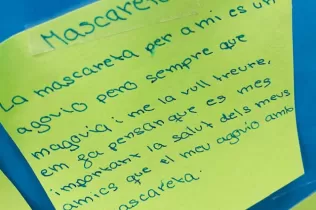 Mascareta
La mascareta per a mi es un
agovio pero sempre que
m'agovia i me la vull treure,
em fa pensar que es mes
important la salut dels meus
amics que el meu agovio amb
mascareta.